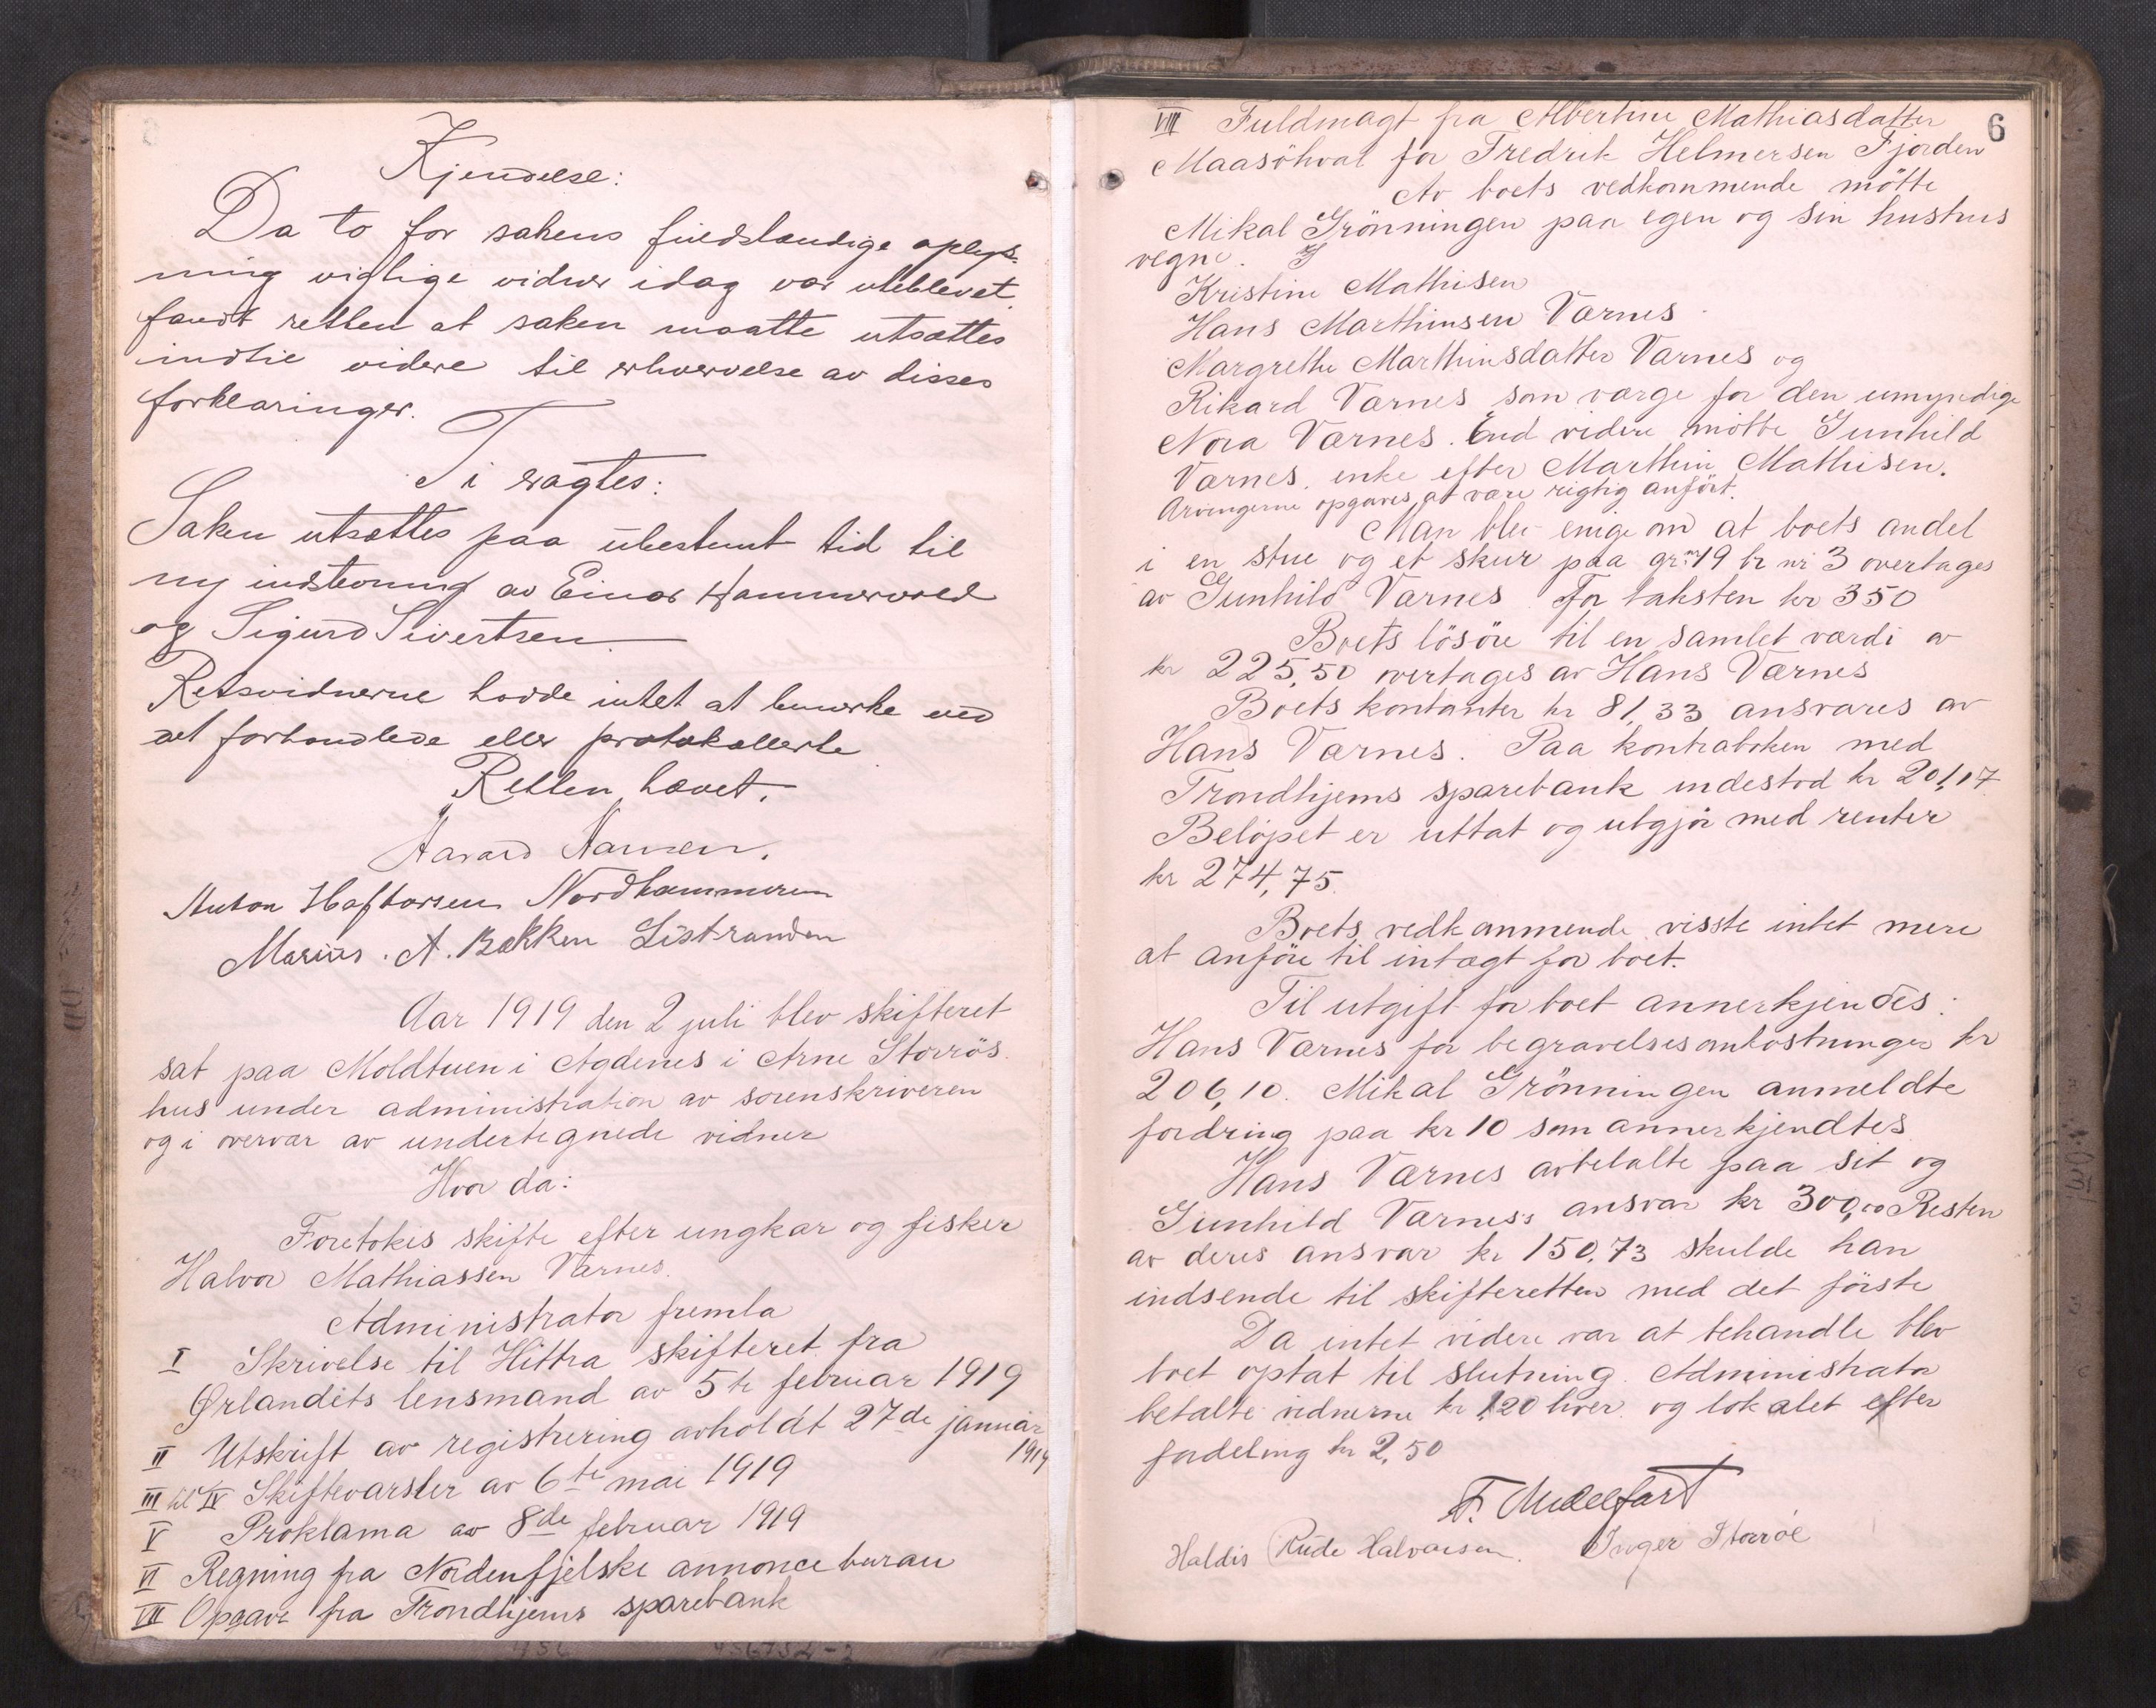 Kjendelse:
Da to for sakens fuldstændige oplys-
ning vigtige vidner idag var uteblevet
fandt retten at saken maatte utsættes
indtil videre til erhvervelse av disses
forklaringer.
Ti eragtes:
Saken utsættes paa ubestemt tid til
ny indstevning av Einar Hammervold
og Sigurd Sivertsen
Retsvidnerne hadde intet at bemerke ved
det forhandlede eller protokollerte
Retten hævet.
Havard Hansen.
Anton Haftorsen Nordhammeren
Marius. A. Bakken Listranden
Aar 1919 den 2 juli blev skifteret
sat paa Moldtuen i Agdenes i Arne Storrös
hus under administration av sorenskriveren
og i overvær av undertegnede vidner
Hvor da:
Foretokes skifte efter ungkar og fisker
Halvor Mathiassen Værnes.
Administrator fremla
I Skrivelse til Hittra skifteret fra
Ørlandets lensmand av 5te februar 1919
II Utskrift av registrering avholdt 27de januar
1919
III til IV Skiftevarsler av 6te mai 1919
V Proklama av 8de februar 1919
VI Regning fra Nordenfjelske annonce burau
VII Opgave fra Trondhjems sparebank
6
VIII Fuldmagt fra Albertine Mathiasdatter
Maasöhval for Fredrik Helmersen Fjorden
Av boets vedkommende mötte
Mikal Grönningen paa egen og sin hustrus
vegne.
Kristine Mathisen
Hans Marthinsen Værnes
Margrethe Marthinsdatter Værnes og
Rikard Værnes som værge for den umyndige
Nora Værnes. End videre mötte Gunhild
Værnes, enke efter Marthin Mathisen.
Arvingerne opgaves at være rigtig anfört.
Man blev enige om at boets andel
i en stue og et skur paa gr. nr 19 br nr 3 overtages
av Gunhild Værnes for taksten kr 350
Boets lösöre til en samlet værdi av
kr 225,50 overtages av Hans Værnes
Boets kontanter kr 81,33 ansvares av
Hans Værnes. Paa kontraboken med
Trondhjems sparebank indestod kr 201,17
Belöpet er uttat og utgjör med renter
kr 274,75.
Boets vedkommende visste intet mere
at anföre til intægt for boet.
Til utgift for boet annerkjendes:
Hans Værnes for begravelsesomkostninger kr
206,10. Mikal Grönningen anmeldte
fordring paa kr 10 som annerkjendtes
Hans Værnes avbetalte paa sit og
Gunhild Værnes's ansvar kr 300,00 Resten
av deres ansvar kr 150,73 skulde han
indsende til skifteretten med det förste
Da intet videre var at behandle blev
boet optat til slutning. Administrator
betalte vidnerne kr 1,20 hver og lokalet efter
fordeling kr 2,50
F. Mudelfart
Haldis Rude Halvorsen. Inger Storröe